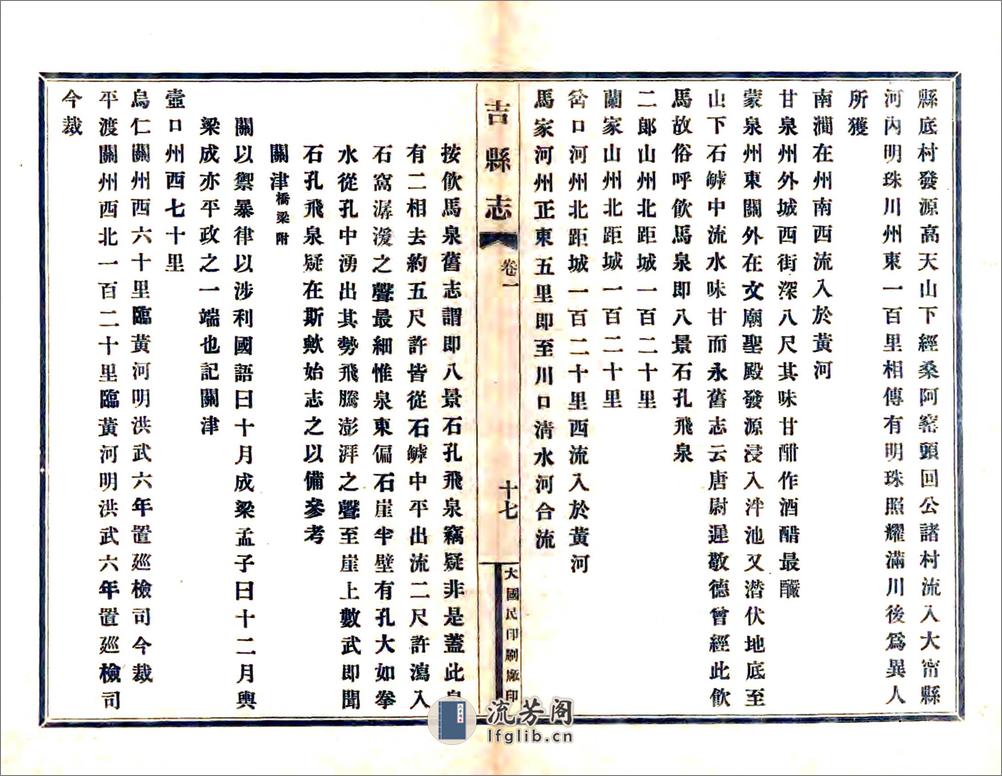 縣底村發源高天山下經桑阿窰頭回公諸村流入大甯縣
河內明珠川州東一百里相傳有明珠照耀滿川後爲異人
所獲
南澗在州南西流入於黃河
甘泉州外城西街深八尺其味甘酣作酒醋最釅
蒙泉州東關外在文廟聖殿發源浸入泮池又潛伏地底至
山下石罅中流水味甘而永舊志云唐尉遲敬德曾經此飲
馬故俗呼飲馬泉即八景石孔飛泉
二郞山州北距城一百二十里
蘭家山州北距城一百二十里
窑口河州北距城一百二十里西流入於黃河
馬家河州正東五里即至川口清水河合流
吉縣志
卷一
十七
大國民印刷廠印
按飲馬泉舊志謂即八景石孔飛泉竊疑非是蓋此泉
有二相去約五尺許皆從石罅中平出流二尺許瀉入
石窩潺湲之聲最細惟泉東偏石崖半壁有孔大如拳
水從孔中湧出其勢飛騰澎湃之聲至崖上數武即聞
石孔飛泉疑在斯歟始志之以備參考
關津橋梁附
關以禦暴律以涉利國語曰十月成梁孟子曰十二月輿
梁成亦平政之一端也記關津
壺口州西七十里
烏仁關州西六十里臨黃河明洪武六年置巡檢司今裁
平渡關州西北一百二十里臨黃河明洪武六年置巡檢司
今裁
流芳阁
lfglib.cn